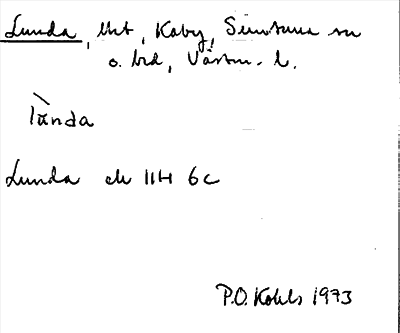 Lunda, Utt, Kaby, Simtuna sn
o. hd, Västm. l.
lànda
Lunda ek 11H 6c
P.O. Kohls 1973